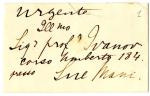 Urgente
Ill mo
Sig r prof r Ivanov
corso Umberto 184
presso